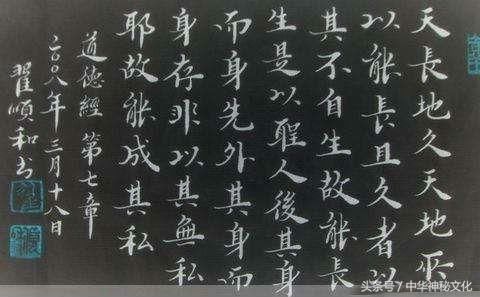 天長地久天地所
以能長且久者以
其不自生故能長
生是以聖人後其身
而身先外其身而
身存非以其無私
耶故能成其私
道德經第七章
二〇〇八年三月十八日
翟順和书
头条号 / 中华神秘文化